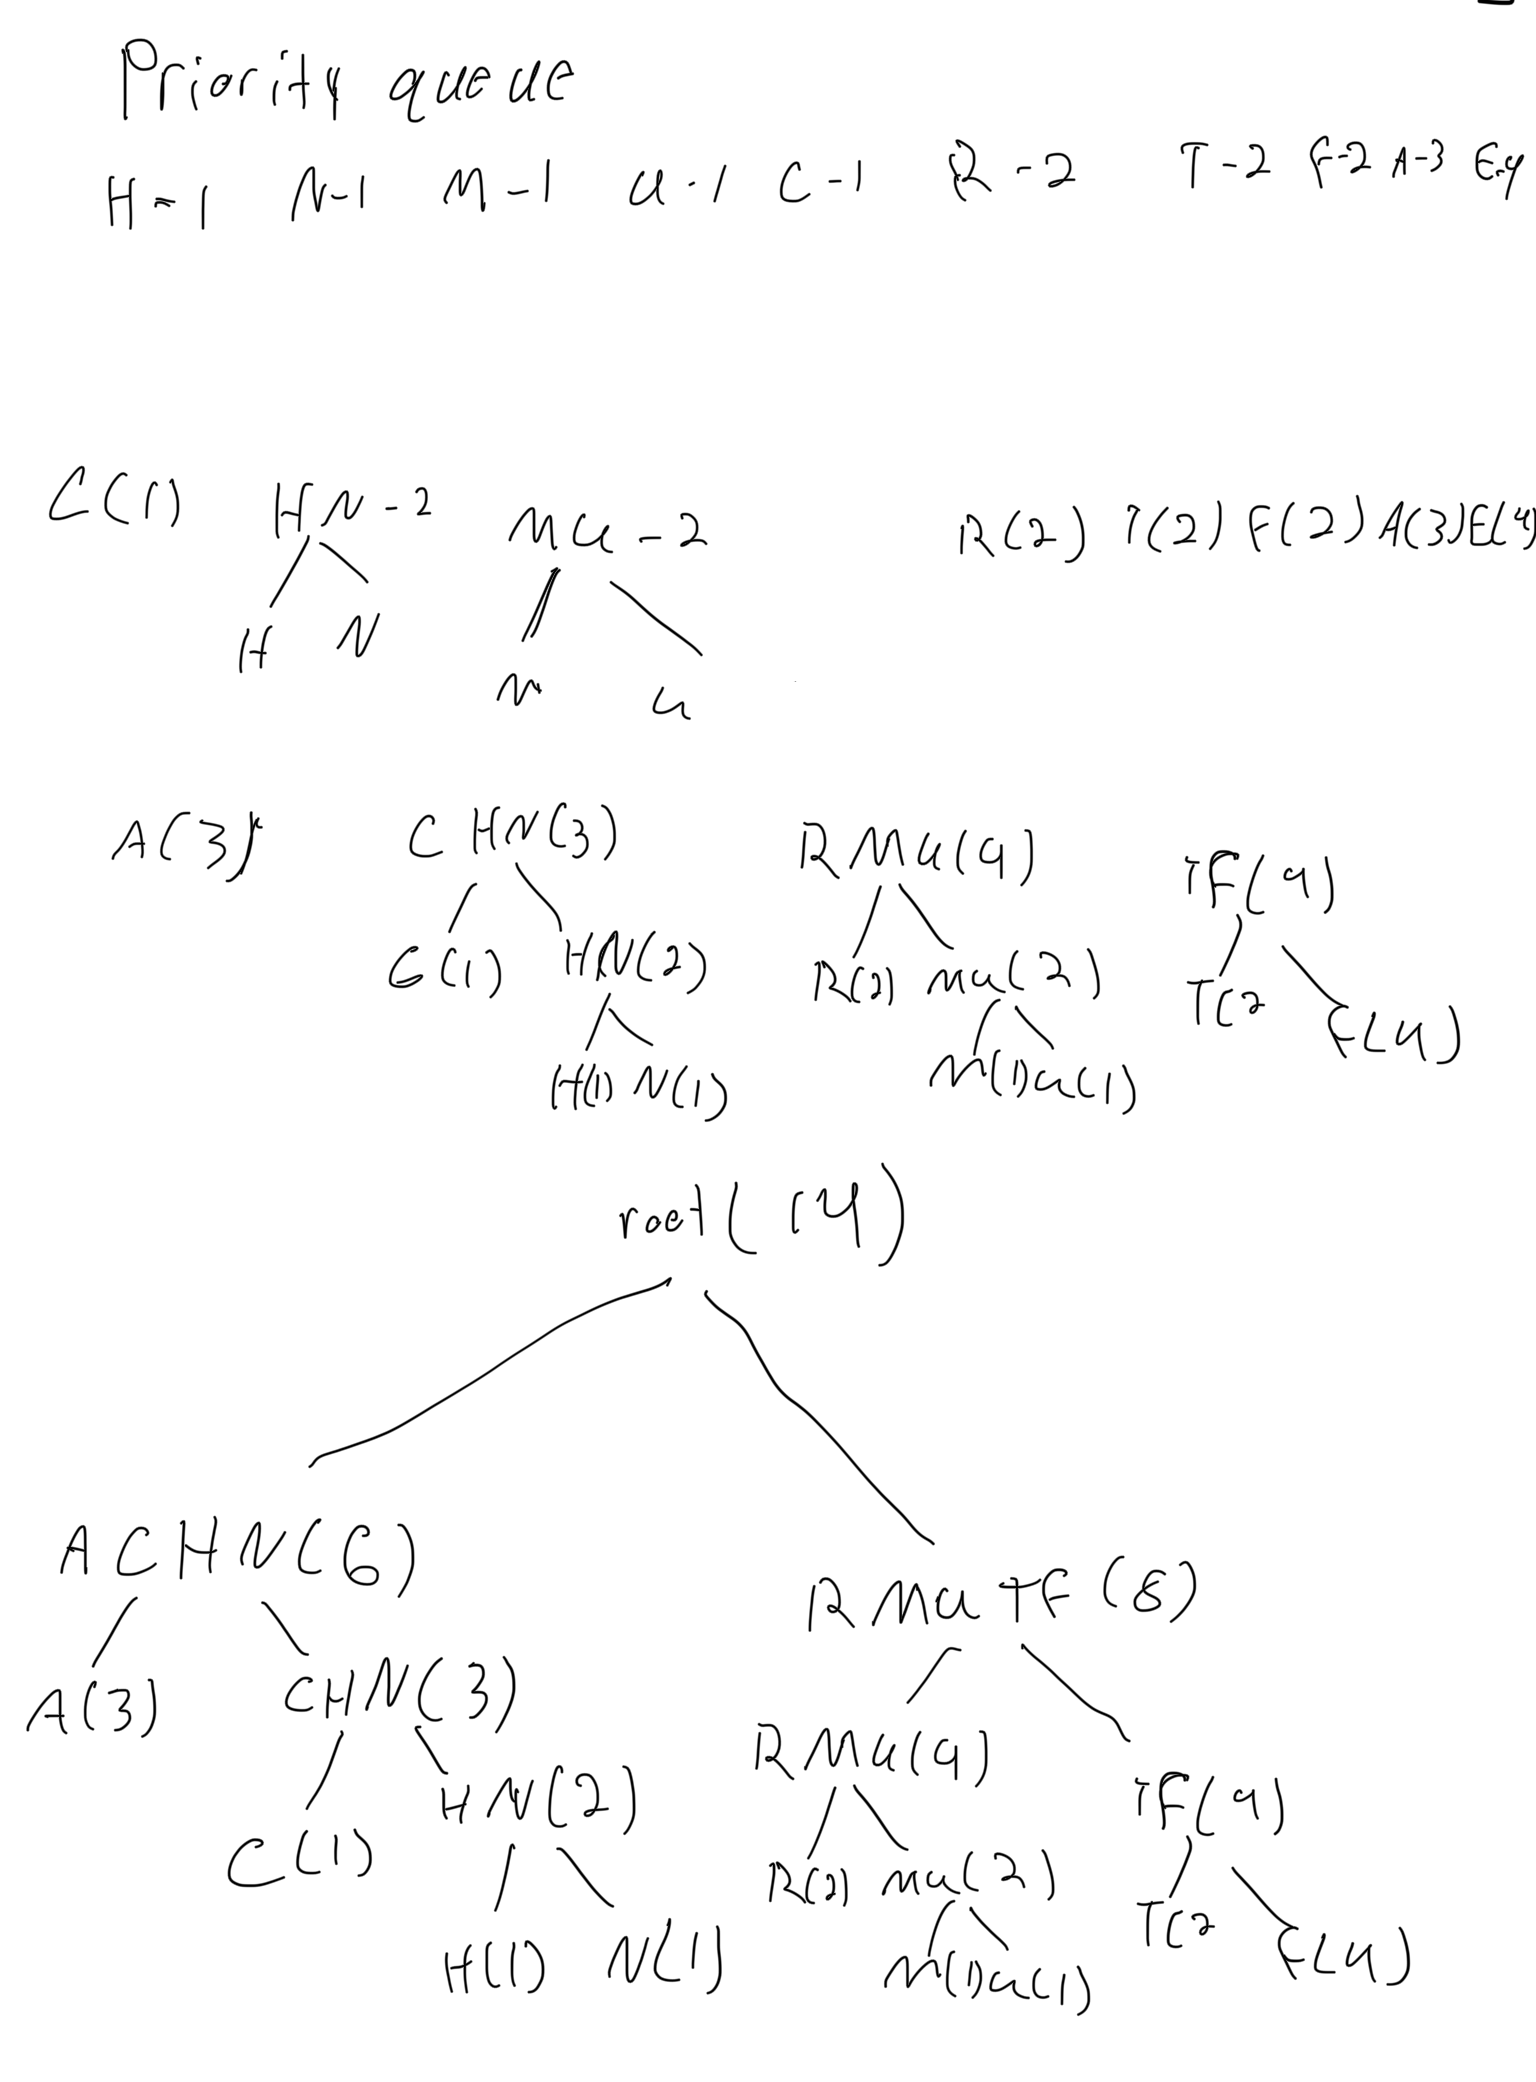 Priority queue
H-1 N-1 M-1 U-1 C-1 R-2 T-2 F-2 A-3 E-4
C(1) HN-2 MU-2 R(2) T(2) F(2) A(3) E(4)
H N
M U
A(3) CHN(3) RMU(4) TF(4)
C(1) HN(2) R(2) MU(2) T(2 F(4)
H(1) N(1) M(1) U(1)
root(14)
ACHN(6) RMUTF(8)
A(3) CHN(3) RMU(4) TF(4)
C(1) HN(2) R(2) MU(2) T(2 F(4)
H(1) N(1) M(1) U(1)